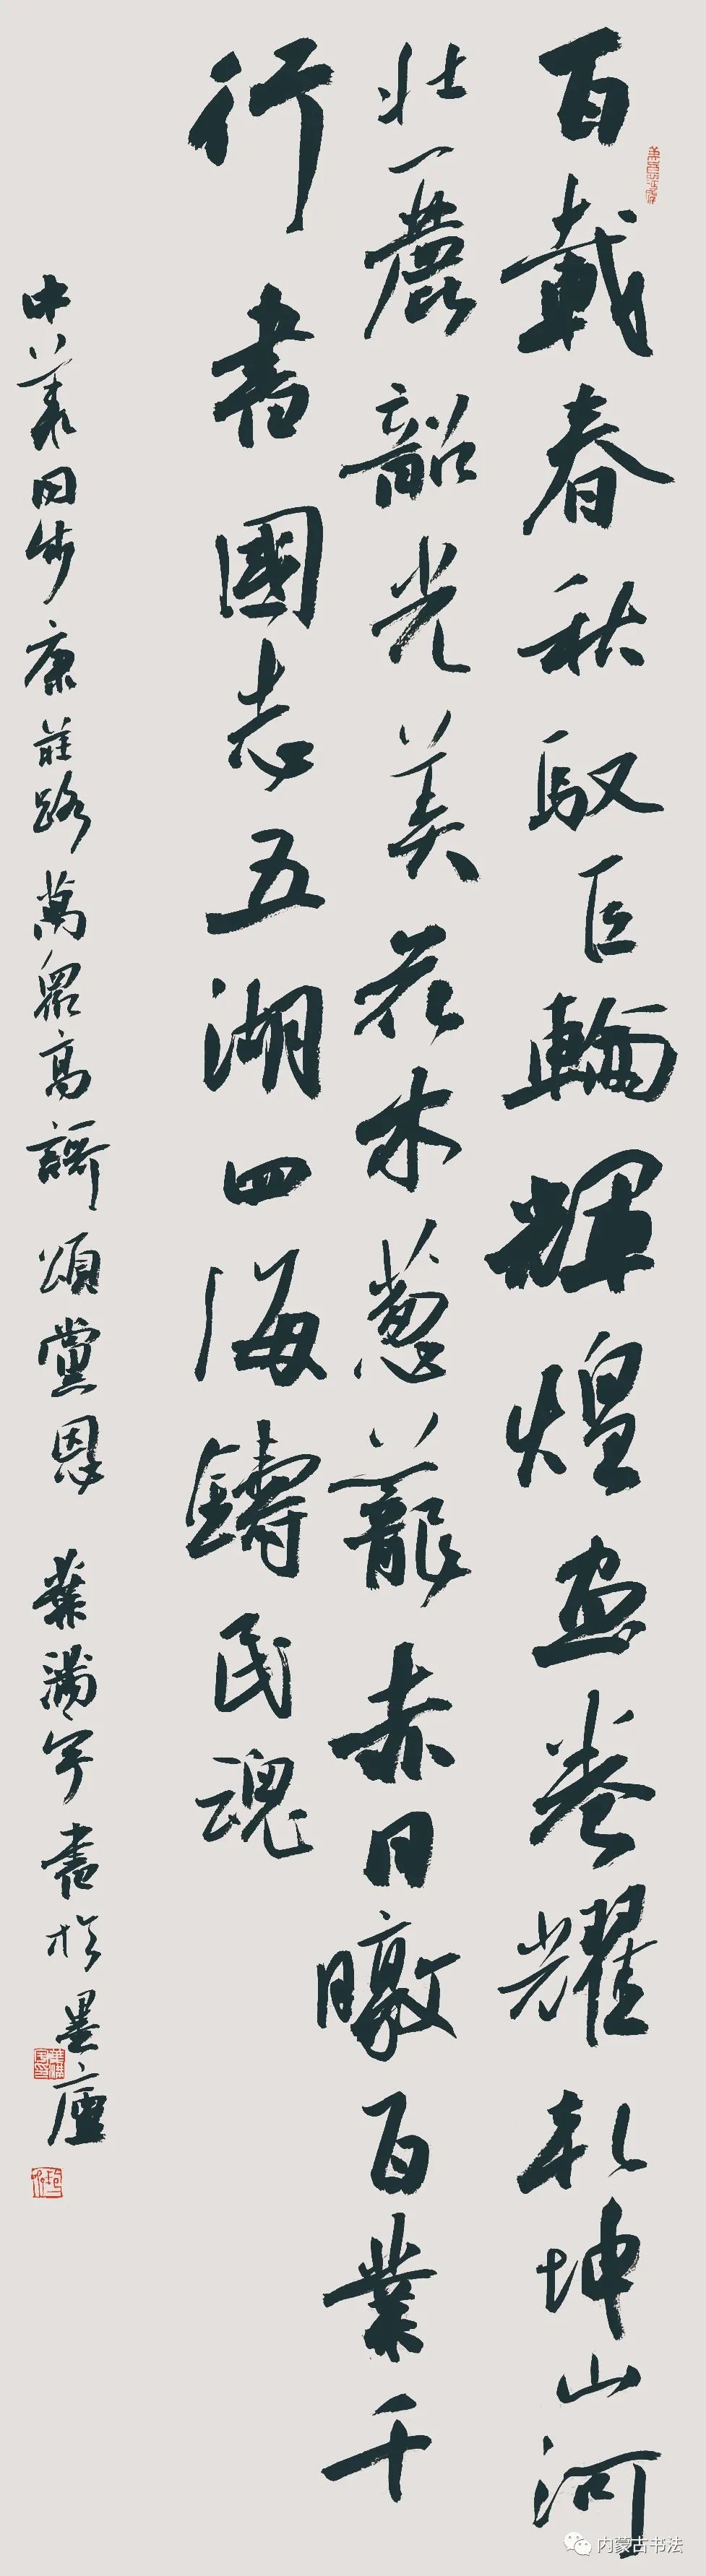 百載春秋馭巨輪輝煌画卷耀乾坤山河
壮麗韶光美花木葱蘢赤日暾百業千
行書國志五湖四海鑄民魂
中華同步康莊路萬眾高謳頌黨恩 葉滿宇書於墨廬
内蒙古书法